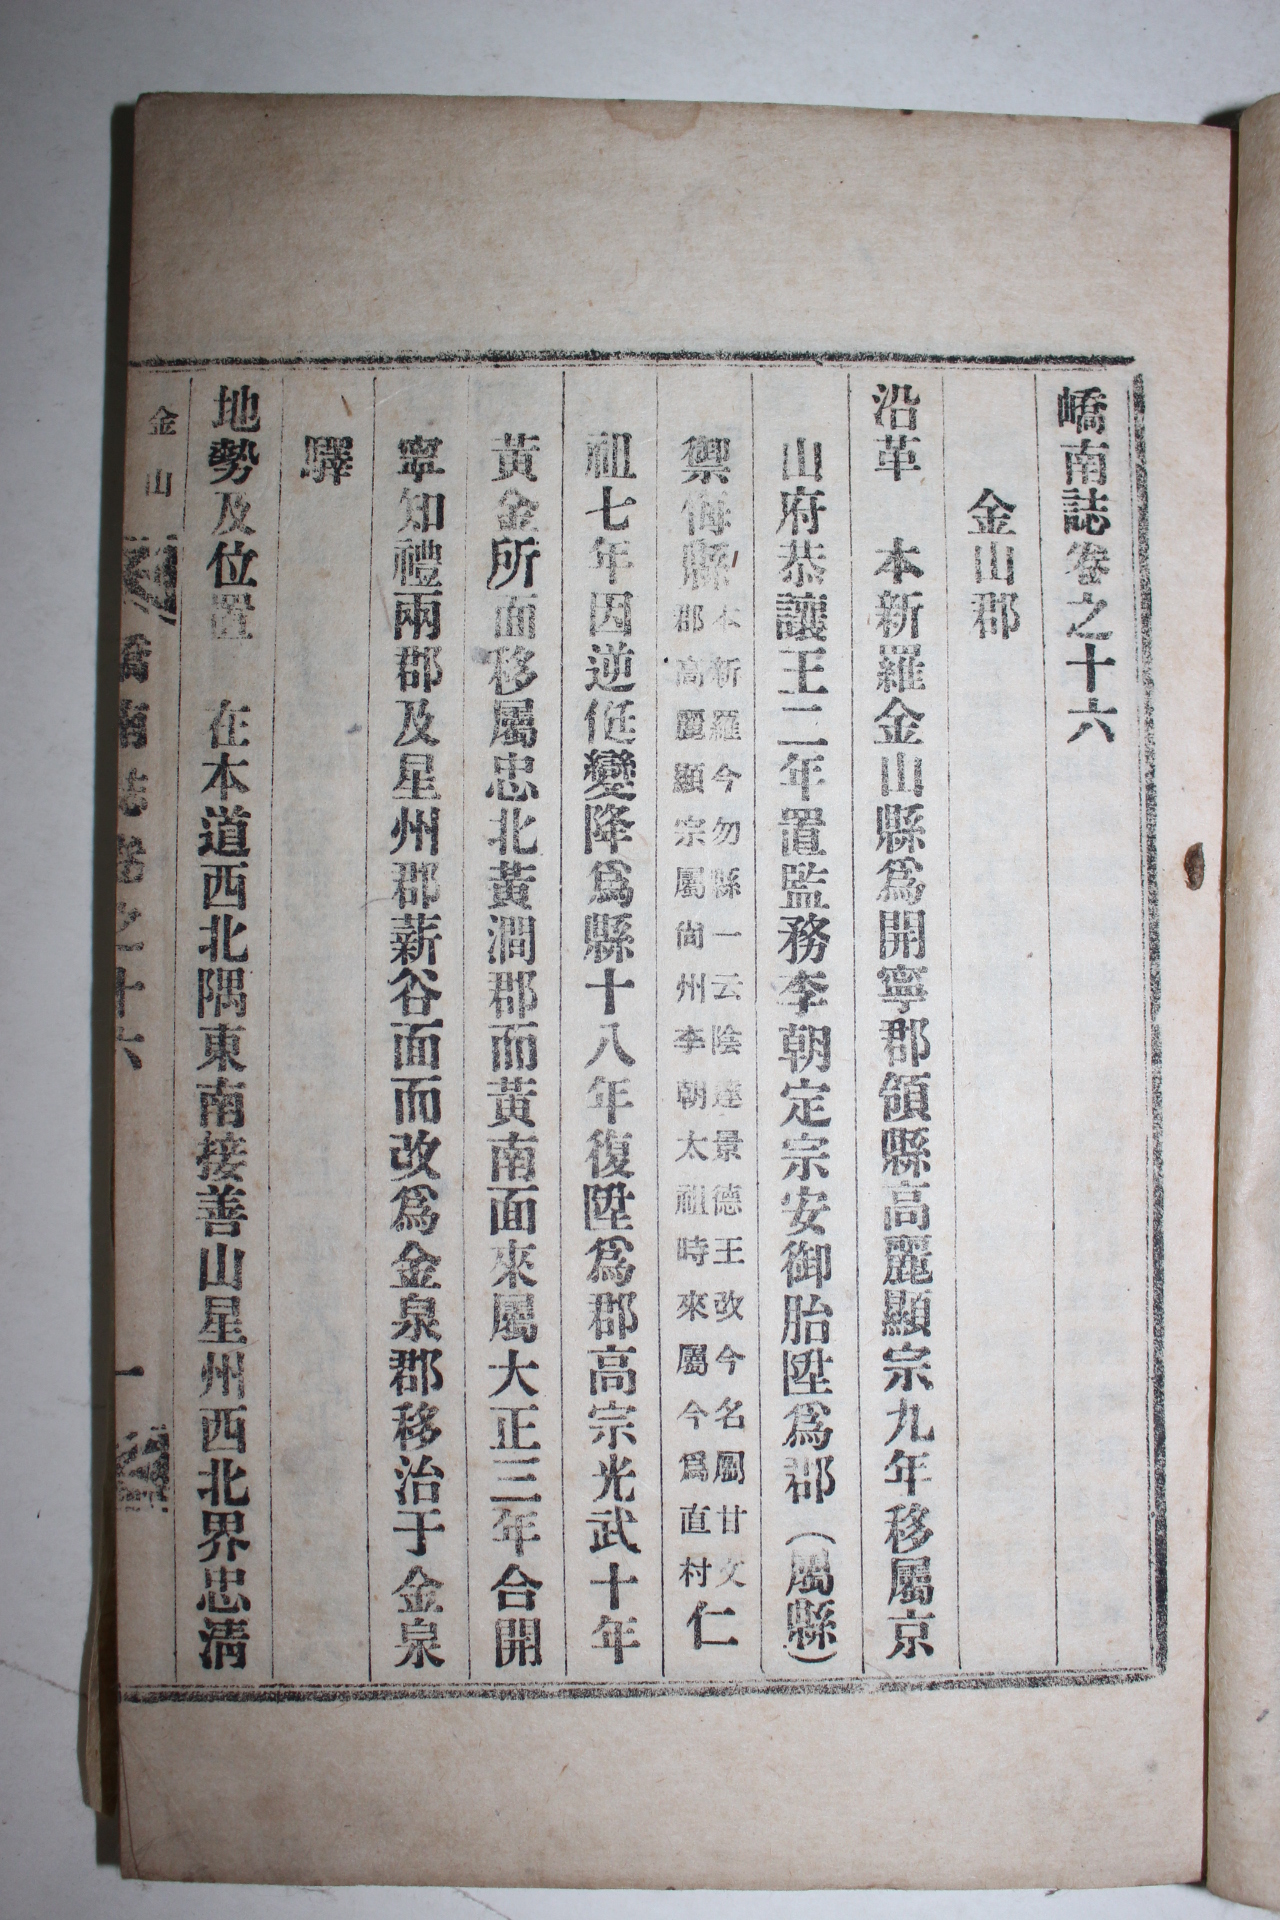 嶠南誌卷之十六
金山郡
沿革 本新羅金山縣爲開寧郡領縣高麗顯宗九年移屬京
山府恭讓王二年置監務李朝定宗安御胎陞爲郡(屬縣)
禦侮縣本新羅今勿縣一云陰達景德王改今名屬甘文郡高麗顯宗屬尙州李朝太祖時來屬今爲直村仁
祖七年因逆侹變降爲縣十八年復陞爲郡高宗光武十年
黃金所面移屬忠北黃澗郡而黃南面來屬大正三年合開
寧知禮兩郡及星州郡薪谷面而改爲金泉郡移治于金泉
驛
地勢及位置 在本道西北隅東南接善山星州西北界忠淸
金山 嶠南誌卷之十六 一